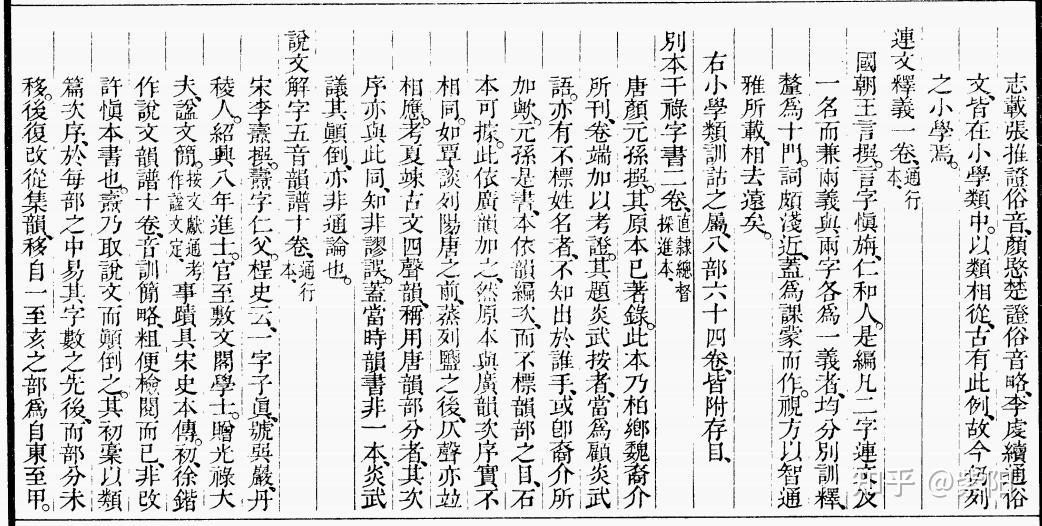 志載張推證俗音、顏愍楚證俗音略、李虔續通俗
文、皆在小學類中。以類相從、古有此例、故今仍列
之小學焉。
連文釋義一卷、通行本、
國朝王言撰。言字慎旃、仁和人。是編凡二字連文及
一名而兼兩義、與兩字各爲一義者、均分別訓釋、
釐爲十門。詞頗淺近、蓋爲課蒙而作。視方以智通
雅所載、相去遠矣。
右小學類訓詁之屬、八部六十四卷、皆附存目、
別本干祿字書二卷、直隸總督採進本、
唐顏元孫撰。其原本已著錄。此本乃柏鄉魏裔介
所刊、卷端加以考證。其題炎武按者、當爲顧炎武
語。亦有不標姓名者、不知出於誰手、或卽裔介所
加歟。元孫是書、本依韻編次、而不標韻部之目、石
本可據。此依廣韻加之、然原本與廣韻次序實不
相同。如覃談列陽唐之前、蒸列鹽之後、仄聲亦竝
相應。考夏竦古文四聲韻、稱用唐韻部分者、其次
序亦與此同、知非謬誤。蓋當時韻書非一本、炎武
議其顛倒、亦非通論也。
說文解字五音韻譜十卷、通行本、
宋李燾撰。燾字仁父。桯史云、一字子眞、號巽巖、丹
稜人。紹興八年進士。官至敷文閣學士。贈光祿大
夫、諡文簡。按文獻通考作諡文定、事蹟具宋史本傳。初、徐鍇
作說文韻譜十卷、音訓簡略、粗便檢閱而已、非改
許慎本書也。燾乃取說文而顛倒之。其初稾以類
篇次序、於每部之中易其字數之先後、而部分未
移。後復改從集韻、移自一至亥之部爲自東至甲。
知乎